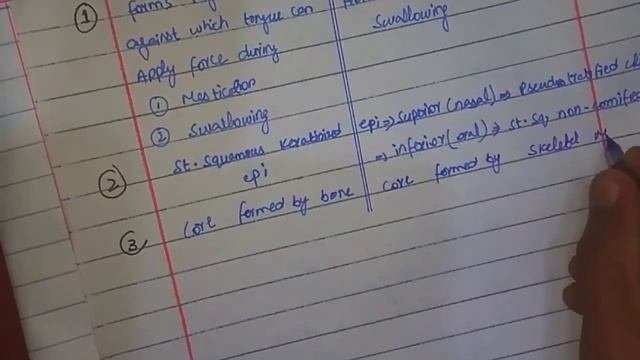 ①
forms
against which tongue can
Apply force during
① Mastication
② Swallowing
Swallowing
②
st. squamous Keratinized
epi
epi ⇒ superior (nasal) ⇒ Pseudostratified
⇒ inferior (oral) ⇒ st. sq. non-
③
core formed by bone
core formed by skeletal